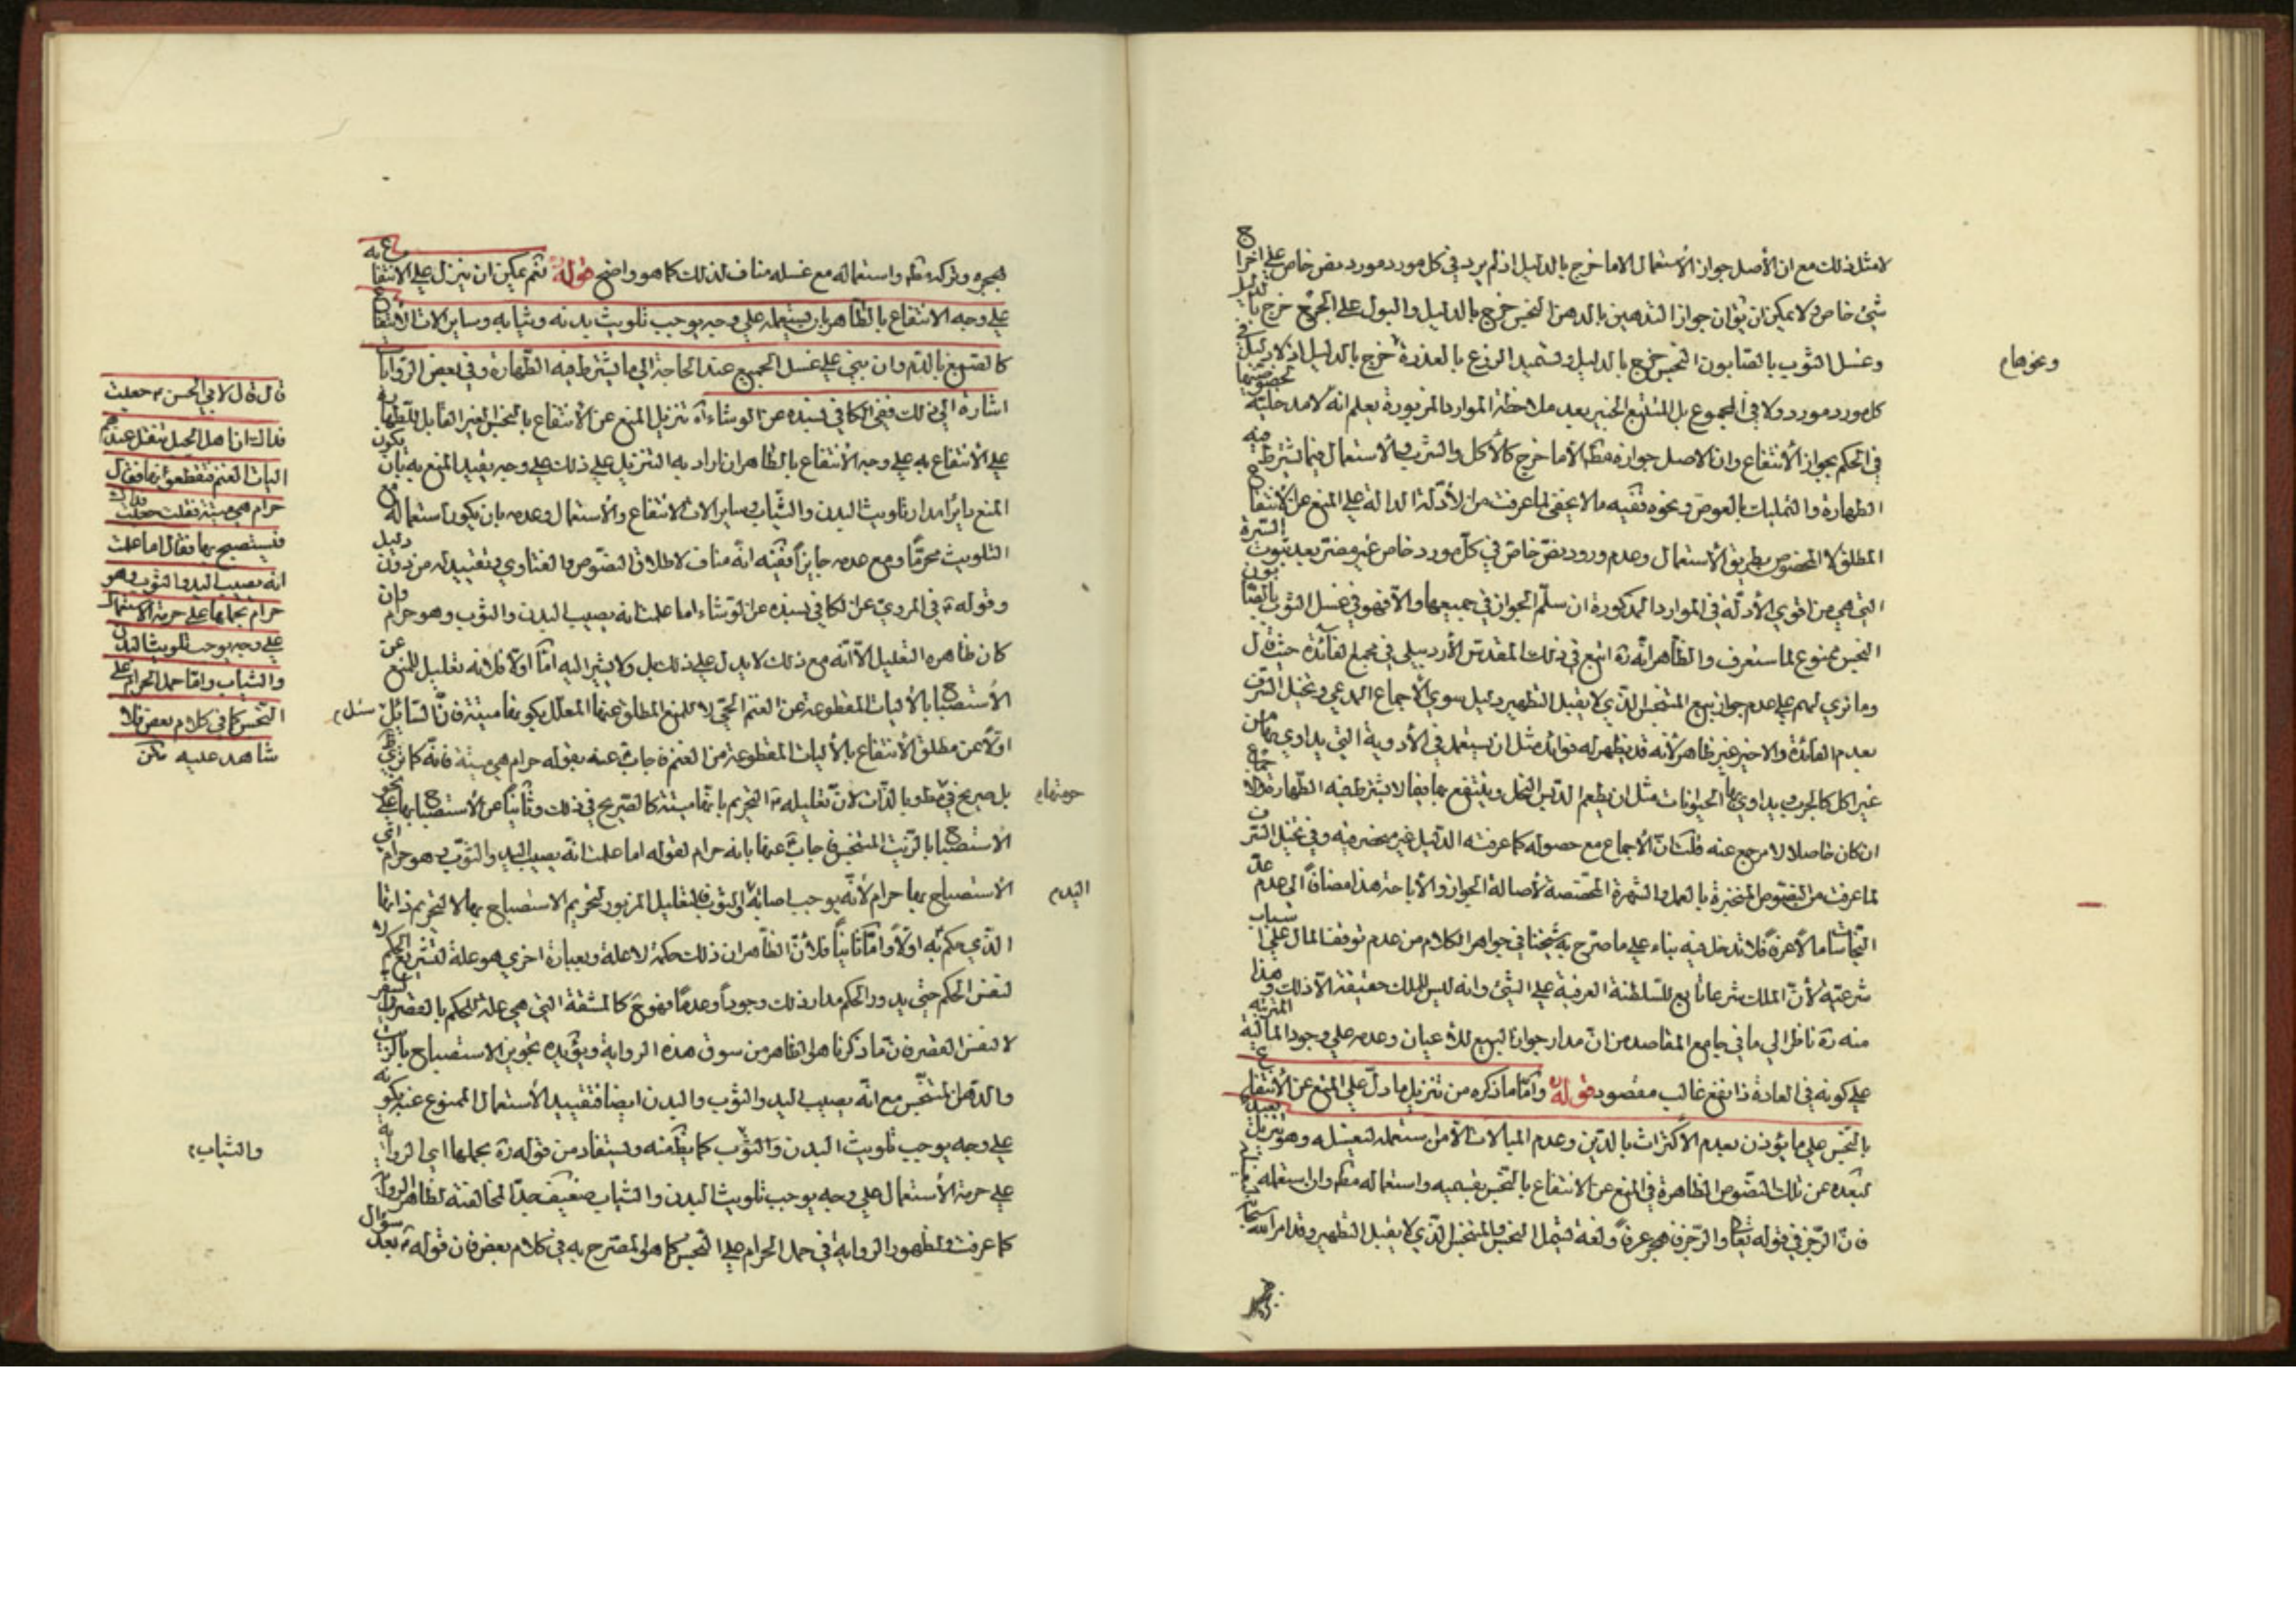 لامثل ذلك مع ان الأصل جواز الأستعمال الاما خرج بالدليل اذ لم يرد في كل مورد مورد نص خاص على اخراج
شئ خاص ولا يمكن ان يق ان جواز التدهين بالدهن النجس خرج بالدليل والبول على الجرح خرج بالدليل
وغسل الثوب بالصابون النجس خرج بالدليل وتسميد الزرع بالعذرة خرج بالدليل اذ لا دليل في
كل مورد مورد ولا في المجموع بل المتتبع الخبير بعد ملاحظة الموارد المزبورة يعلم انه لا مدخلية لخصوصيتها
في الحكم بجواز الأنتفاع وان الاصل جوازه مطه الأما خرج كالأكل والشرب والأستعمال فيما يشترط فيه
الطهارة والتمليك بالعوض ونحوه ففيه ما لا يخفى لما عرفت من الأدلة الدالة على المنع عن الأنتفاع
المطلق لا المخصوص بطريق الأستعمال وعدم ورود نص خاص في كل مورد خاص غير مضر بعد ثبوت السيرة
التي هي من اقوى الأدلة في الموارد المذكورة ان سلم الجواز في جميعها والا فهو في غسل الثوب بالصابون
النجس ممنوع لما ستعرف والظاهر انه ره اتبع في ذلك المقدس الأردبيلي في مجمع الفائدة حيث قال
وما نرى لهم على عدم جواز بيع المتنجس الذي لا يقبل التطهير دليل سوى الأجماع المدعى وتخيل السرف
بعدم الفائدة والاخير غير ظاهر لأنه قد يظهر له فوائد مثل ان يستعمل في الأدوية التي يداوى بها من
غير اكل كالجرب ويداوى بها الحيوانات مثل ان يطعم الدبس النحل وينتفع بها فيما لا يشترط فيه الطهارة فالاجماع
ان كان حاصلا لا مرجع عنه قلت ان الأجماع مع حصوله كما عرفته الدليل غير منحصر فيه وفي تخيل السرف
لما عرفت من النصوص المنجبرة بالعمل والشهرة المخصصة لأصالة الجواز والأباحة هذا مضافا الى عدم عد
النجاسات مالا عرفا فلا تدخل فيه بناء على ما صرح به شيخنا في جواهر الكلام من عدم توقف المال على اسباب
شرعية لأن الملك شرعا تابع للسلطنة العرفية على الشئ وانه ليس للملك حقيقة الا ذلك وهذا
منه ره ناظر الى ما في جامع المقاصد من ان مدار جواز البيع للأعيان وعدمه على وجود المالية المترتبة
على كونه في العادة ذا نفع غالب مقصود قوله ره واما ما ذكره من تنزيل ما دل على المنع عن الأنتفاع
بالنجس على ما يؤذن بعدم الأكتراث بالدين وعدم المبالات الأمن استعمله ليغسله وهو تنزيل بعيد
لبعده عن تلك النصوص الظاهرة في المنع عن الانتفاع بالنجس بقسميه واستعماله مطه وان استعمله
فان الرجز في قوله تعالى والرجز فاهجر عرفا ولغة تشمل النجس والمتنجس الذي لا يقبل التطهير وقد امر الله سبحانه
ونحوها م
بهجره وتركه مطه واستعماله مع غسله مناف لذلك كما هو واضح قوله ثم يمكن ان ينزل على الانتفاع به
على وجه الانتفاع بالطاهر بان يستعمله على وجه يوجب تلويث بدنه وثيابه وساير الات الأنتفاع
كالصبغ بالدم وان بنى على غسل الجميع عند الحاجة الى ما يشترط فيه الطهارة وفي بعض الروايات
اشارة الى ذلك ففي الكافي بسنده عن الوشاء اه تنزيل المنع عن الأنتفاع بالنجس الغير القابل للتطهير
على الأنتفاع به على وجه الأنتفاع بالطاهر ان اراد به التنزيل على ذلك على وجه يقيد المنع به بان يكون
المنع دايرا مدار تلويث البدن والثياب وساير الات الانتفاع والأستعمال وعدمه بان يكون استعماله مع
التلويث محرما ومع عدمه جايزا ففيه انه مناف لاطلاق النصوص والفتاوى وتقييد له من دون دليل
وقوله ع في المروي عن الكافي بسنده عن الوشاء اما علمت انه يصيب البدن والثوب وهو حرام وان
كان ظاهره التعليل الأ انه مع ذلك لا يدل على ذلك بل ولا يشير اليه اما اولا فلانه تعليل للمنع عن
الأستصباح بالأليات المقطوعة عن الغنم الحى لا للمنع المطلق عنها المعلل بكونها ميتة فان السائل سئل م
اولا عن مطلق الأنتفاع بالأليات المقطوعة من الغنم فاجاب عنه بقوله حرام هي ميتة فانه كما ترى
بل صريح في حرمتها م مطه وبالذات لان تعليله ع التحريم بانها ميتة كالصريح في ذلك وثانيا عن الأستصباح بها على نحو
الأستصباح بالزيت المتنجس فاجاب عنها بانه حرام لقوله اما علمت انه يصيب اليد والثوب وهو حرام اى
الأستصباح بها حرام لأنه يوجب اصابة اليد م والثوب فالتعليل المزبور لتحريم الاستصباح بها لا لتحريم ذاتها
الذي حكم به اولا واما ثانيا فلأن الظاهر ان ذلك حكمة لا علة وبعبارة اخرى هو علة لتشريع الحكم لا
لنفس الحكم حتى يدور الحكم مدار ذلك وجودا وعدما فهو ح كالمشقة التي هي علة للحكم بالقصر في السفر
لا لنفس القصر فان ما ذكرنا هو الظاهر من سوق هذه الرواية ويؤيده تجويز الاستصباح بالزيت
والدهن المتنجس مع انه يصيب اليد والثوب والبدن ايضا فتقييد الأستعمال الممنوع عنه بكونه
على وجه يوجب تلويث البدن والثوب والثياب م كما يظهر منه ويستفاد من قوله ره بحملها اى الرواية
على حرمة الأستعمال على وجه يوجب تلويث البدن والثياب ضعيف جدا لمخالفته لظاهر الرواية
كما عرفت ولظهور الرواية في حمل الحرام على النجس كما هو المصرح به في كلام بعض فان قوله ع بعد سؤال
قال قال لابي الحسن ع جعلت
فداك ان اهل الجبل تثقل عندهم
اليات الغنم فيقطعونها فقال
حرام هي ميتة فقلت جعلت فداك
فيستصبح بها فقال اما علمت
انه يصيب اليد والثوب وهو
حرام بحملها على حرمة الاستعمال
على وجه يوجب تلويث البدن
والثياب واما حمل الحرام على
النجس كما في كلام بعض فلا
شاهد عليه